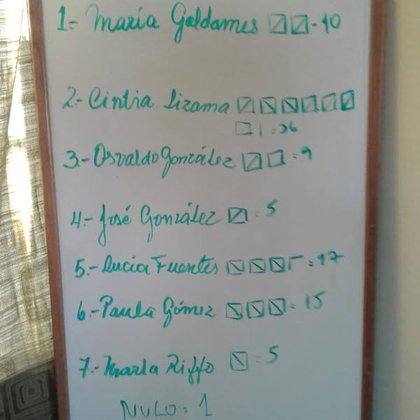 1.- María Galdames - 10
2.- Cintia Lizama
: 36
3.- Osvaldo González = 9
4.- José González = 5
5.- Lucia Fuentes = 17
6.- Paula Gómez = 15
7.- Marla Riffo = 5
NULO = 1